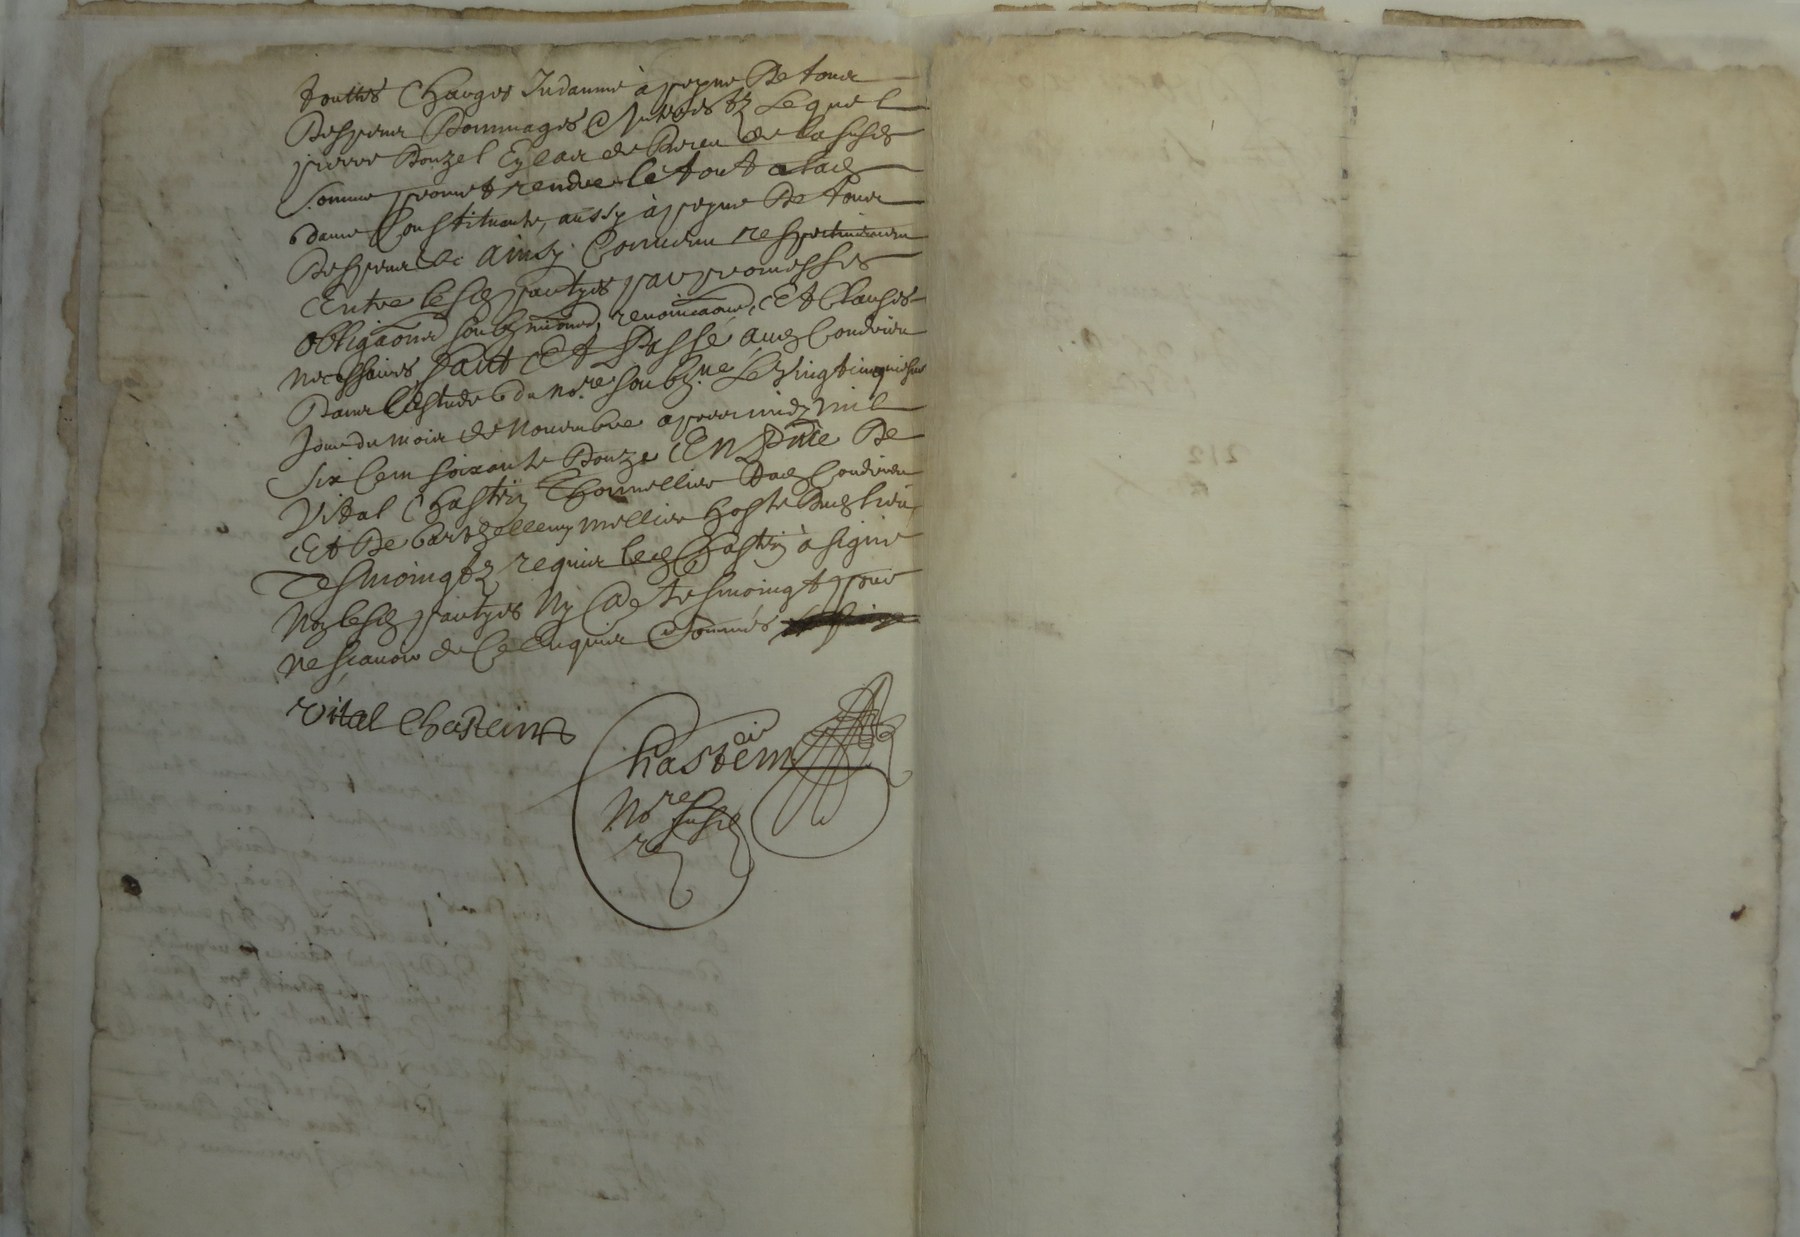 touttes Charges Indamne à peyne De tous
Despens Dommages & Interests Lequel
pierre Donzel Eslair de Dieu de la susd
somme promet rendre le tout a lad
dame Constituante, aussy à peyne De tous
Despens &c ainsy Convenu respectivement
Entre lesd partyes par promesses
obligaons soubzmions, renoincaons, Et Clauses
necessaires faict Et Passé aud Condrieu
Dans l'estude du no.re soubz.né Le vingtcinquiesme
Jour du mois de Novembre apres midy mil
Six Cens soixante Douze EN Pnce De
Vidal Chastein Thonnellier dud Condrieu
Et De Barthellemy mellier hoste Dud lieu
Tesmoingtz requis led Chastein à signé
Non lesd partyes Ny led tesmoingt pour
ne scavoir de Ce Enquis & sommés
vital Chastein
Chastein
No.re